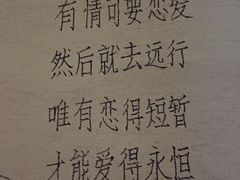 有情可要恋爱
然后就去远行
唯有恋得短暂
才能爱得永恒